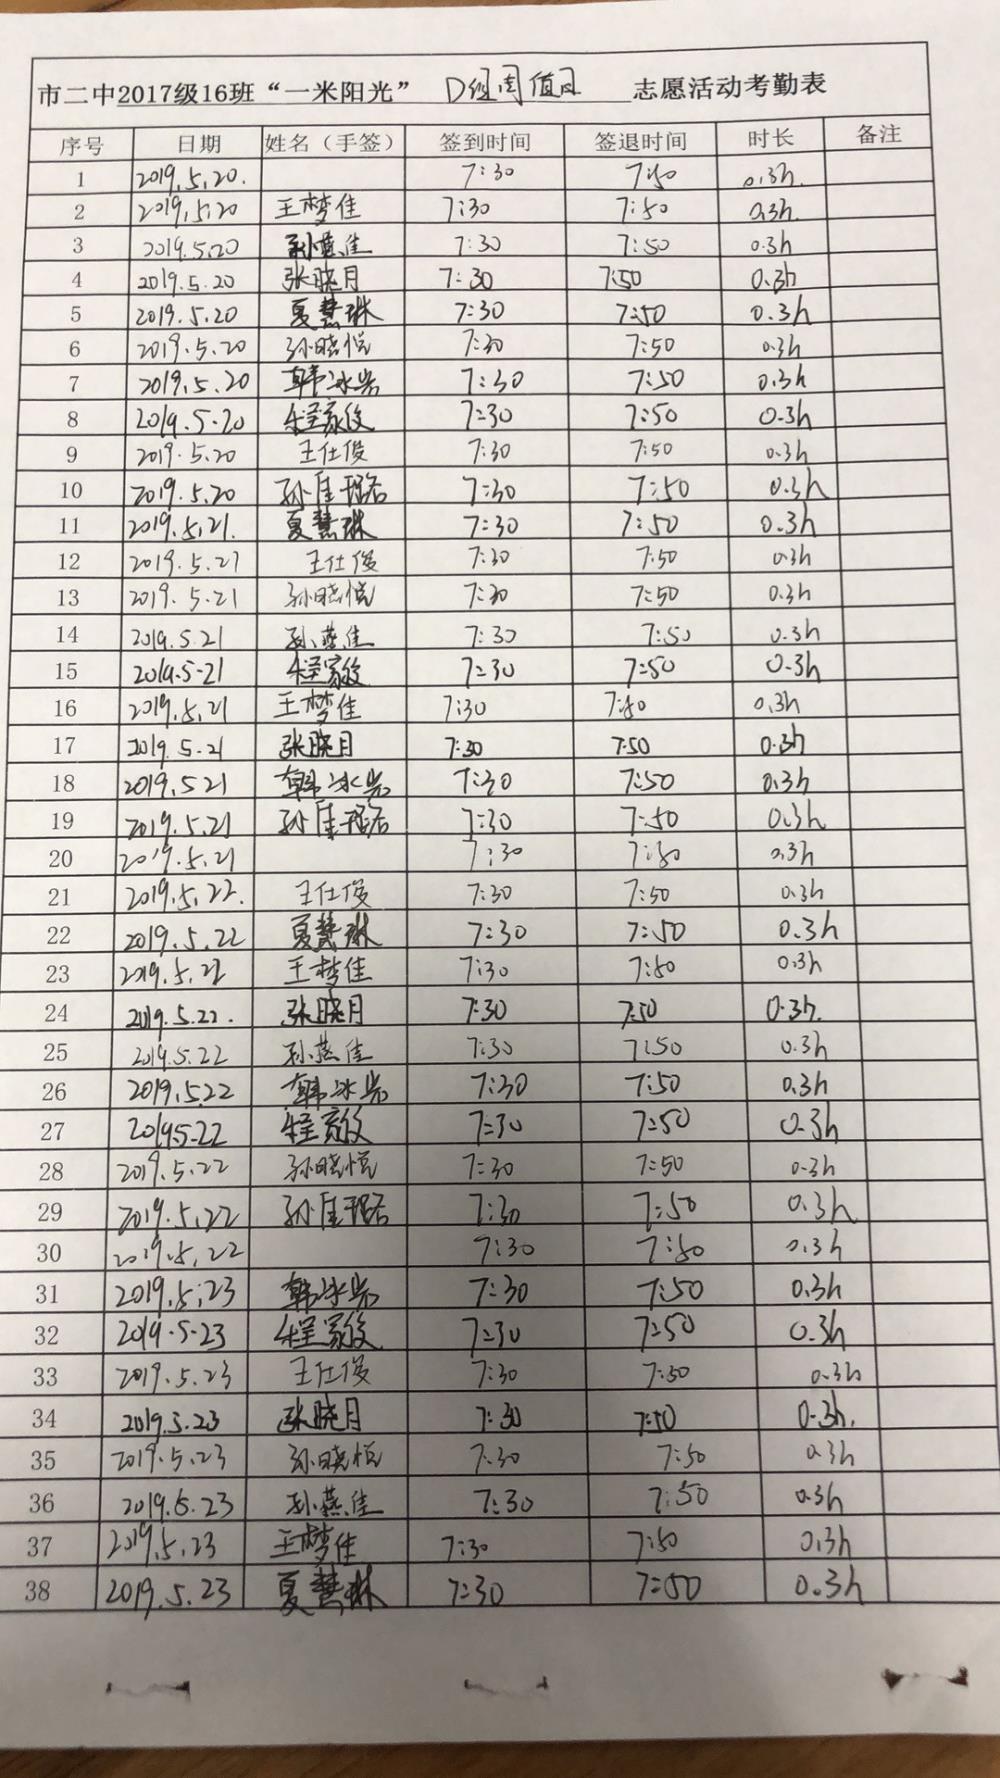 市二中2017级16班“一米阳光” D组周值日 志愿活动考勤表
序号 日期 姓名（手签） 签到时间 签退时间 时长 备注
1 2019.5.20. 7:30 7:50 0.3h.
2 2019.5.20 王梦佳 7:30 7:50 0.3h.
3 2019.5.20 孙燕佳 7:30 7:50 0.3h
4 2019.5.20 张晓月 7:30 7:50 0.3h
5 2019.5.20 夏慧琳 7:30 7:50 0.3h
6 2019.5.20 孙晓悦 7:30 7:50 0.3h
7 2019.5.20 韩冰岩 7:30 7:50 0.3h
8 2019.5.20 程家俊 7:30 7:50 0.3h
9 2019.5.20 王仕俊 7:30 7:50 0.3h
10 2019.5.20 孙佳琚 7:30 7:50 0.3h
11 2019.5.21. 夏慧琳 7:30 7:50 0.3h
12 2019.5.21 王仕俊 7:30 7:50 0.3h
13 2019.5.21 孙晓悦 7:30 7:50 0.3h
14 2019.5.21 孙燕佳 7:30 7:50 0.3h
15 2019.5.21 程家俊 7:30 7:50 0.3h
16 2019.5.21 王梦佳 7:30 7:50 0.3h
17 2019.5.21 张晓月 7:30 7:50 0.3h
18 2019.521 韩冰岩 7:30 7:50 0.3h
19 2019.5.21 孙佳琚 7:30 7:50 0.3h
20 2019.5.21 7:30 7:50 0.3h
21 2019.5.22. 王仕俊 7:30 7:50 0.3h
22 2019.5.22 夏慧琳 7:30 7:50 0.3h
23 2019.5.22 王梦佳 7:30 7:50 0.3h
24 2019.5.22. 张晓月 7:30 7:50 0.3h.
25 2019.5.22 孙燕佳 7:30 7:50 0.3h
26 2019.5.22 韩冰岩 7:30 7:50 0.3h
27 2019.5-22 程家俊 7:30 7:50 0.3h
28 2019.5.22 孙晓悦 7:30 7:50 0.3h
29 2019.5.22 孙佳琚 7:30 7:50 0.3h
30 2019.5.22 7:30 7:50 0.3h
31 2019.5.23 韩冰岩 7:30 7:50 0.3h
32 2019.5.23 程家俊 7:30 7:50 0.3h
33 2019.5.23 王仕俊 7:30 7:50 0.3h
34 2019.5.23 张晓月 7:30 7:50 0.3h.
35 2019.5.23 孙晓悦 7:30 7:50 0.3h
36 2019.5.23 孙燕佳 7:30 7:50 0.3h
37 2019.5.23 王梦佳 7:30 7:50 0.3h
38 2019.5.23 夏慧琳 7:30 7:50 0.3h